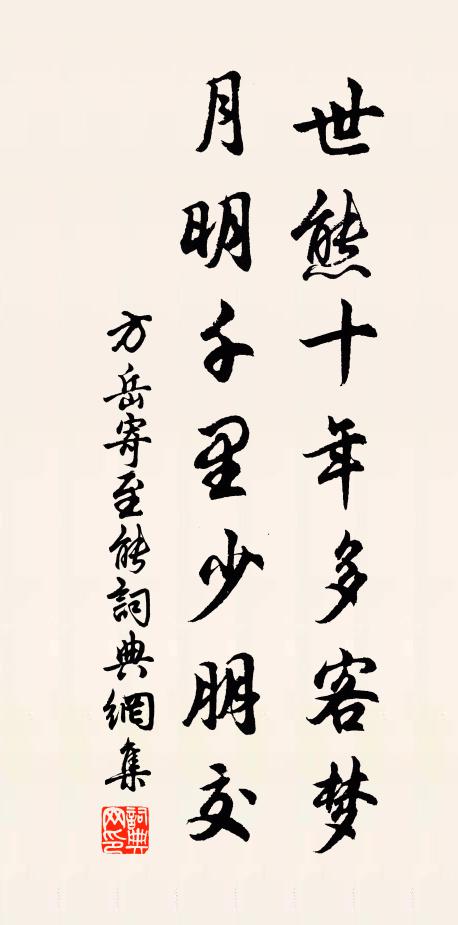 世態十年多客梦
月明千里少朋交
方岳寄至能詞典網集
詞典网印